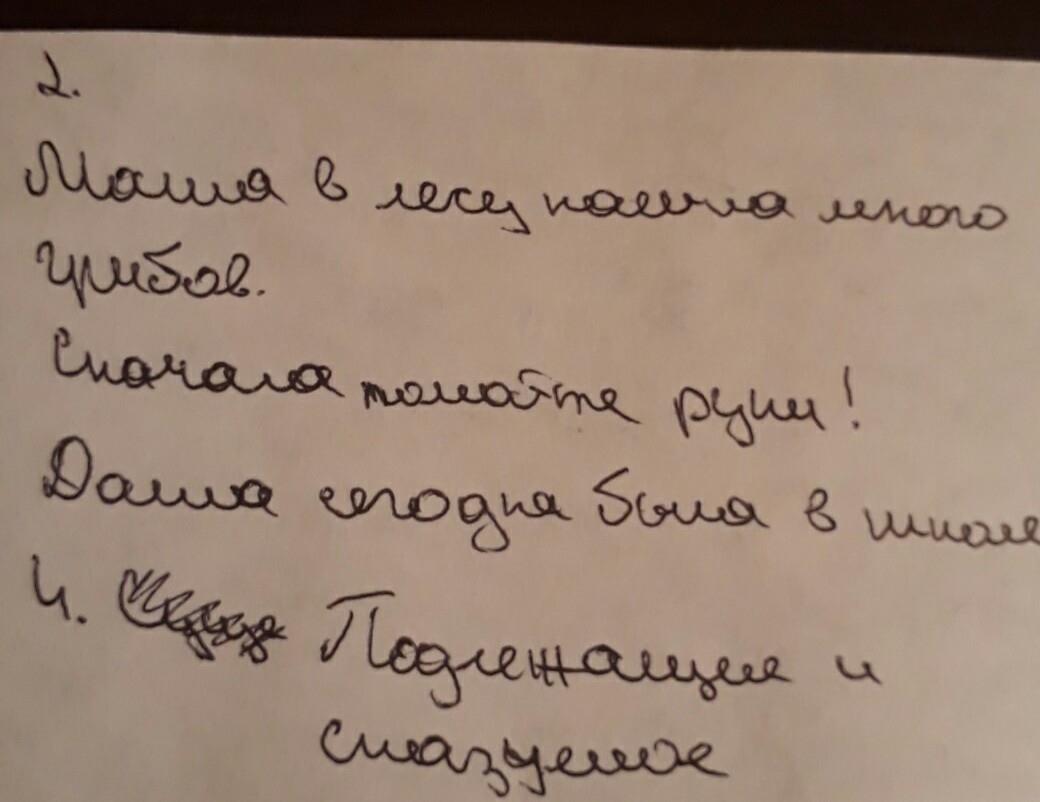 2.
Маша в лесу нашла много
грибов.
Сначала помойте руки!
Даша сегодня была в школе
4. Подлежащее и
сказуемое